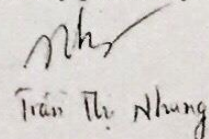 Nhg
Trần Thị Nhung